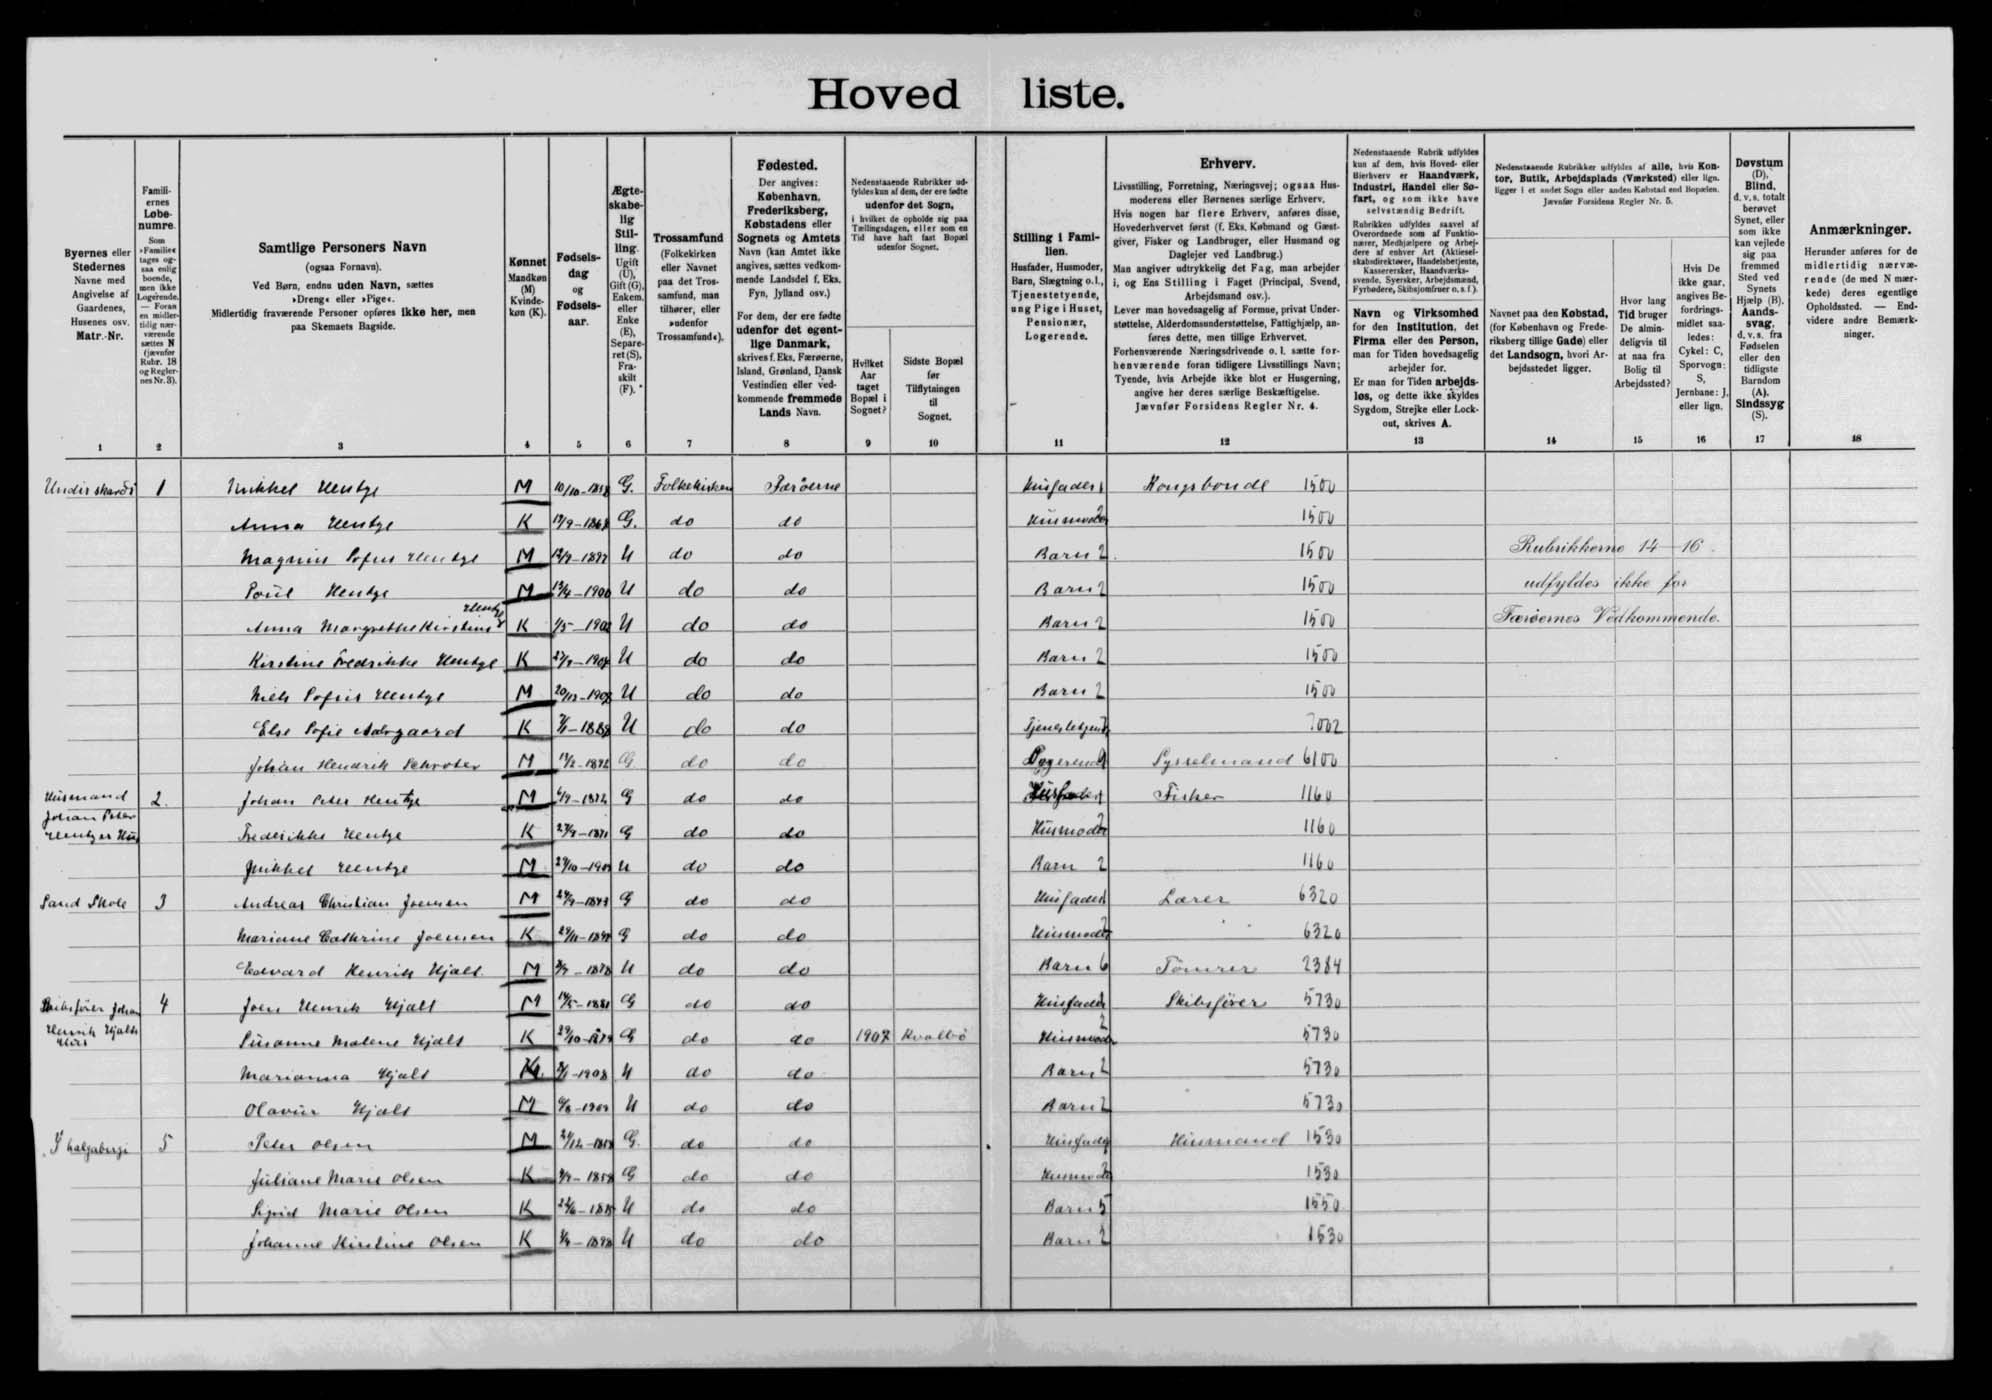 Hoved liste.
Byernes eller Stedernes Navne med Angivelse af Gaardenes, Husenes osv. Matr.-Nr.
Familiernes Løbenumre. Som »Familie« tages ogsaa enlig boende, men ikke Logerende. — Foran en midlertidig nærværende sættes N (jævnfør Rubr. 18 og Regler-nes Nr. 3).
Samtlige Personers Navn (ogsaa Fornavn). Ved Børn, endnu uden Navn, sættes »Dreng« eller »Pige«. Midlertidig fraværende Personer opføres ikke her, men paa Skemaets Bagside.
Kønnet Mandkøn (M) Kvindekøn (K).
Fødselsdag og Fødselsaar.
Ægteskabelig Stilling. Ugift (U), Gift (G), Enkem. eller Enke (E), Separeret (S), Fraskilt (F).
Trossamfund (Folkekirken eller Navnet paa det Trossamfund, man tilhører, eller »udenfor Trossamfund«).
Fødested. Der angives: København, Frederiksberg, Købstadens eller Sognets og Amtets Navn (kan Amtet ikke angives, sættes vedkommende Landsdel f. Eks. Fyn, Jylland osv.) For dem, der ere fødte udenfor det egentlige Danmark, skrives f. Eks. Færøerne, Island, Grønland, Dansk Vestindien eller vedkommende fremmede Lands Navn.
Nedenstaaende Rubrikker udfyldes kun af dem, der ere fødte udenfor det Sogn, i hvilket de opholde sig paa Tællingsdagen, eller som en Tid have haft fast Bopæl udenfor Sognet.
Hvilket Aar taget Bopæl i Sognet?
Sidste Bopæl før Tilflytningen til Sognet.
Stilling i Familien. Husfader, Husmoder, Barn, Slægtning o. l., Tjenestetyende, ung Pige i Huset, Pensionær, Logerende.
Erhverv. Livsstilling, Forretning, Næringsvej; ogsaa Husmoderens eller Børnenes særlige Erhverv. Hvis nogen har flere Erhverv, anføres disse, Hovederhvervet først (f. Eks. Købmand og Gæstgiver, Fisker og Landbruger, eller Husmand og Daglejer ved Landbrug.) Man angiver udtrykkelig det Fag, man arbejder i, og Ens Stilling i Faget (Principal, Svend, Arbejdsmand osv.). Lever man hovedsagelig af Formue, privat Understøttelse, Alderdomsunderstøttelse, Fattighjælp, anføres dette, men tillige Erhvervet. Forhenværende Næringsdrivende o. l. sætte forhenværende foran tidligere Livsstillings Navn; Tyende, hvis Arbejde ikke blot er Husgerning, angive her deres særlige Beskæftigelse. Jævnfør Forsidens Regler Nr. 4.
Nedenstaaende Rubrik udfyldes kun af dem, hvis Hoved- eller Bierhverv er Haandværk, Industri, Handel eller Søfart, og som ikke have selvstændig Bedrift.
Rubrikken udfyldes saavel af Overordnede som af Funktionærer, Medhjælpere og Arbejdere af enhver Art (Aktieselskabsdirektører, Handelsbetjente, Kasserersker, Haandværkssvende, Syersker, Arbejdsmænd, Fyrbødere, Skibsjomfruer o. s. f.).
Navn og Virksomhed for den Institution, det Firma eller den Person, man for Tiden hovedsagelig arbejder for. Er man for Tiden arbejdsløs, og dette ikke skyldes Sygdom, Strejke eller Lockout, skrives A.
Nedenstaaende Rubrikker udfyldes af alle, hvis Kontor, Butik, Arbejdsplads (Værksted) eller lign. ligger i et andet Sogn eller anden Købstad end Bopælen. Jævnfør Forsidens Regler Nr. 5.
Navnet paa den Købstad, (for København og Frederiksberg tillige Gade) eller det Landsogn, hvori Arbejdsstedet ligger.
Hvor lang Tid bruger De almindeligvis til at naa fra Bolig til Arbejdssted?
Hvis De ikke gaar, angives Befordringsmidlet saaledes: Cykel: C, Sporvogn: S, Jernbane: J, eller lign.
Døvstum (D), Blind, d. v. s. totalt berøvet Synet, eller som ikke kan vejlede sig paa fremmed Sted ved Synets Hjælp (B). Aandssvag, d. v. s. fra Fødselen eller den tidligste Barndom (A). Sindssyg (S).
Anmærkninger. Herunder anføres for de midlertidig nærværende (de med N mærkede) deres egentlige Opholdssted. — Endvidere andre Bemærkninger.
1 2 3 4 5 6 7 8 9 10 11 12 13 14 15 16 17 18
Undir skarði 1 Mikkel Hentze M G. Folkekirken Færöerne Husfader 1 Kongsbonde 1500
Anna Hentze K G. do do Husmoder 2 1500
Magnus Sofus Hentze M U do do Barn 2 1500 Rubrikkerne 14-16
Poul Hentze M 1900 U do do Barn 2 1500 udfyldes ikke for
Anna Margrethe Kirstine Hentze K U do do Barn 2 1500 Færøernes Vedkommende.
Kirstine Fredrikke Hentze K U do do Barn 2 1500
Niels Sofus Hentze M U do do Barn 2 1500
Else Sofie Aabrgaard K U do do
Johan Hendrik Schrøter M G do do Logerende 9 Sysselmand 6100
Husmand Johan Peter Hentzes Hus 2. Johan Peter Hentze M G do do Husfader 1 Fisker 1160
Frederikke Hentze K G do do Husmoder 2 1160
Mikkel Hentze M U do do Barn 2 1160
Sand Skole 3 Andreas Christian Joensen M G do do Husfader 1 Lærer 6320
Mariane Cathrine Joensen K G do do Husmoder 2 6320
Edvard Henrik Hjalt M U do do Barn 6 Tömrer 2384
Skibsfører Johan Henrik Hjalts Hus 4 Joen Henrik Hjalt M G do do Husfader 1 Skibsfører 5730
Susanne Malene Hjalt K G do do 1907 Kvalbö Husmoder 2 5730
Marianna Hjalt K 1908 U do do Barn 2 5730
Olavur Hjalt M U do do Barn 2 5730
5 Peter Olsen M G. do do Husfader Husmand 1530
Juliane Marie Olsen K G do do Husmoder 2 1530
Sigrid Marie Olsen K U do do Barn 5 1550
Johanne Kirstine Olsen K U do do Barn 2 1530